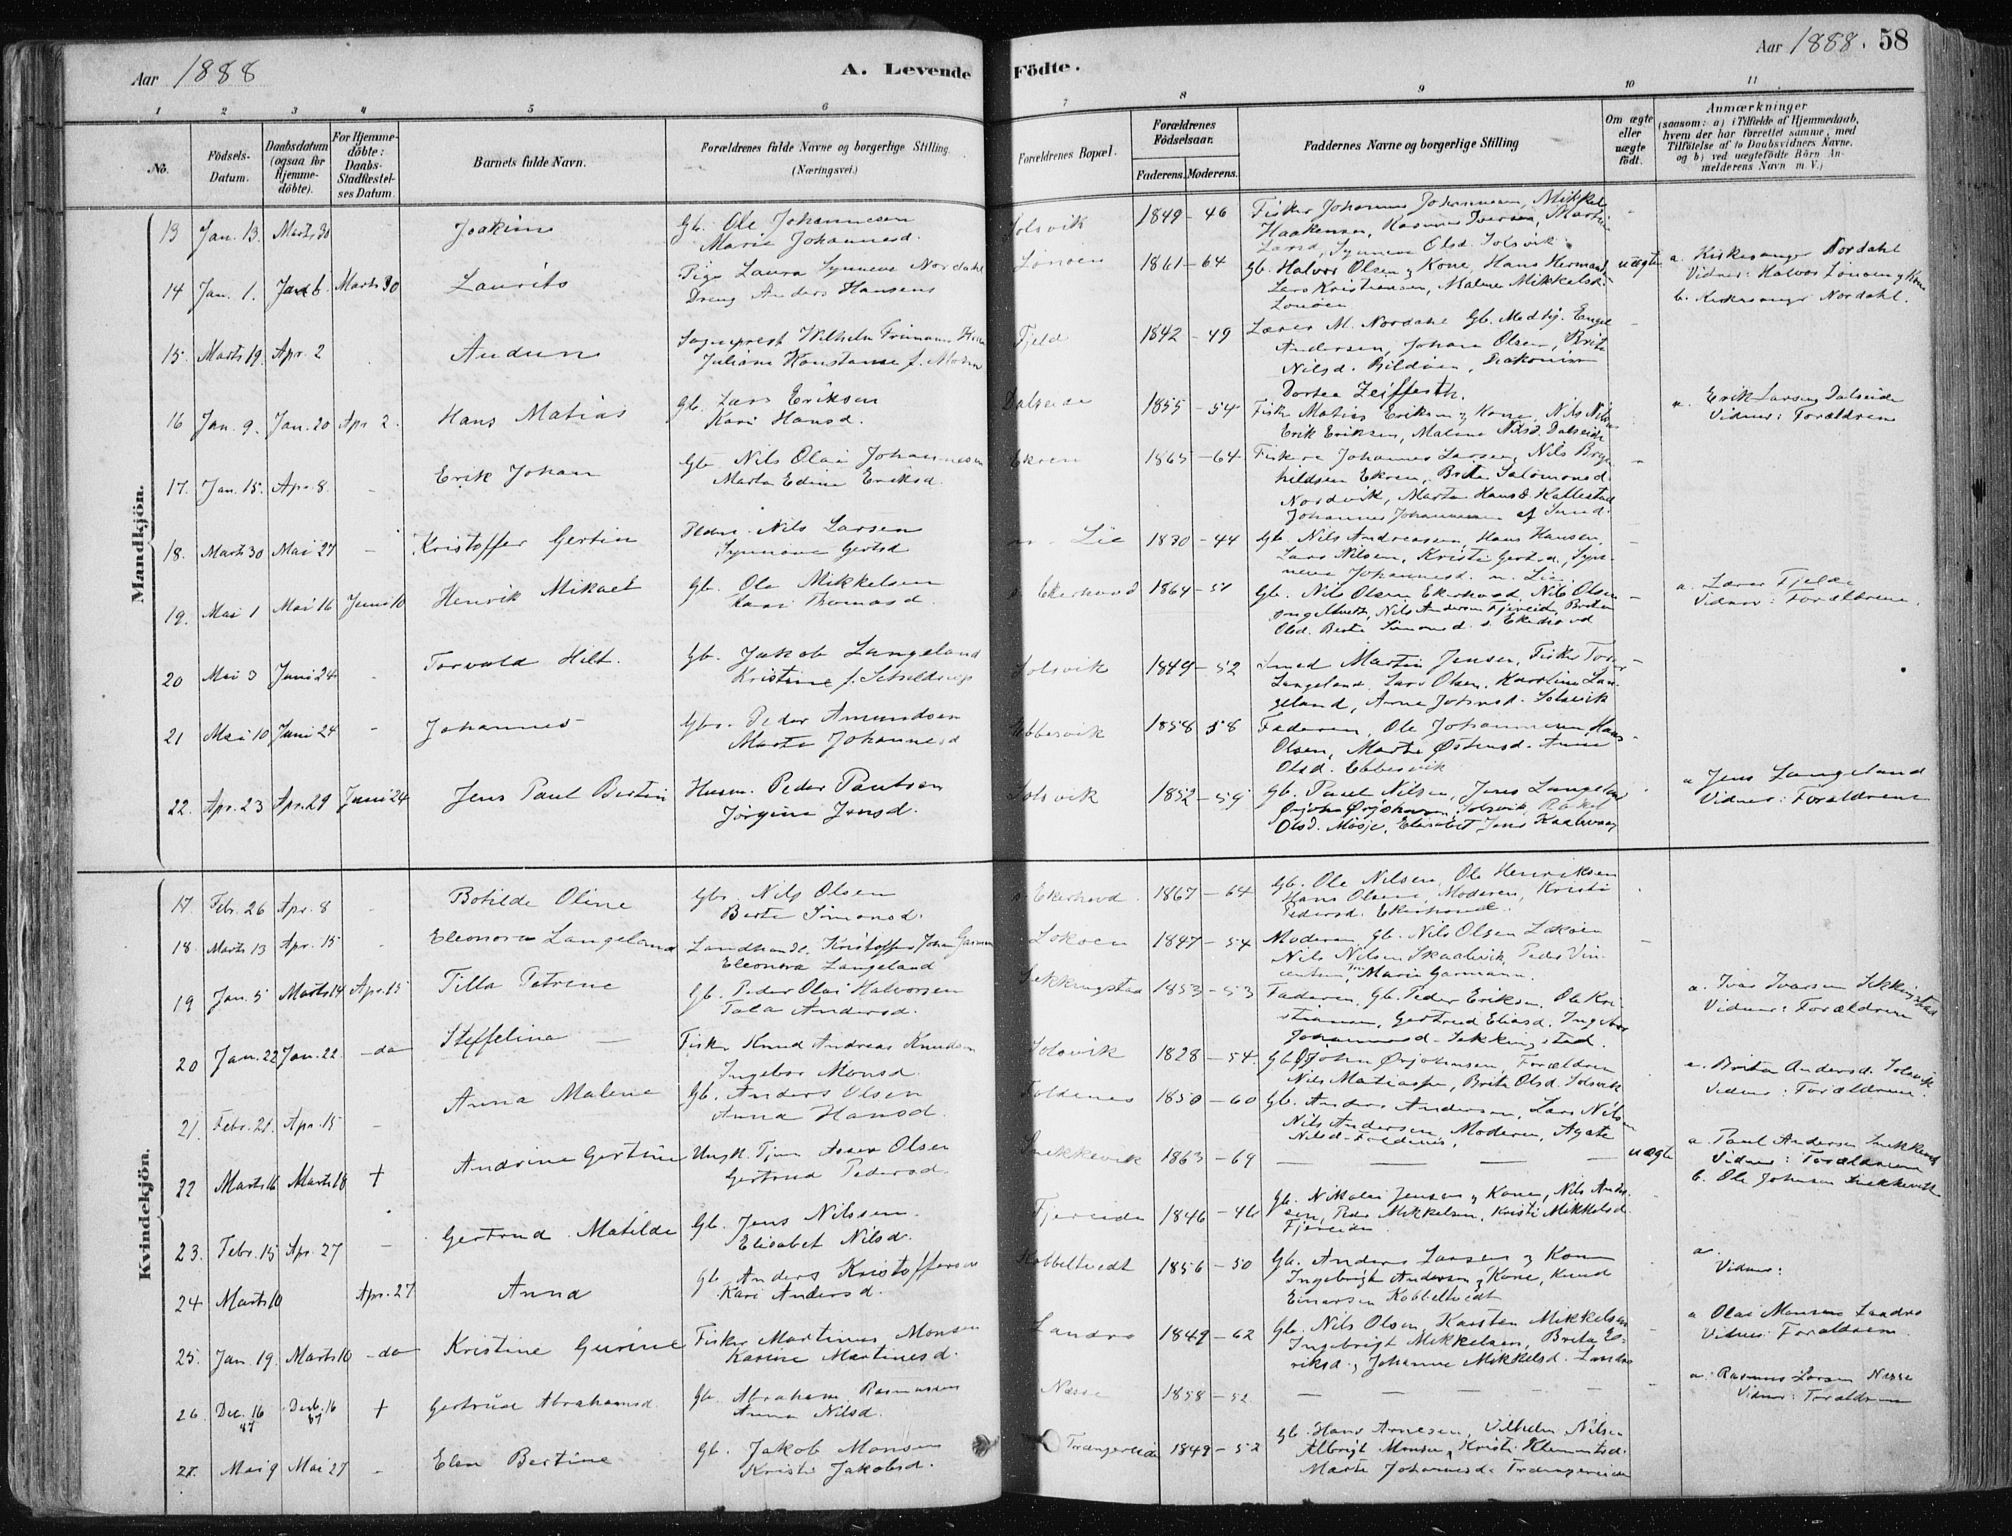 Aar 1888
A. Levende Födte.
Aar 1888. 58
1 2 3 4 5 6 7 8 9 10 11
No.
Födsels-Datum.
Daabsdatum (ogsaa for Hjemme-döbte).
For Hjemme-döbte: Daabs-Stadfæstel-ses Datum.
Barnets fulde Navn.
Forældrenes fulde Navne og borgerlige Stilling (Næringsvei.)
Forældrenes Bopæl.
Forældrenes Födselsaar.
Faderens. Moderens.
Faddernes Navne og borgerlige Stilling
Om ægte eller uægte födt.
Anmærkninger
(saasom: a) i Tilfælde af Hjemmedaab, hvem der har forrettet samme, med Tilföielse af to Daabsvidners Navne, og b) ved uægtefödte Börn An-melderens Navn m V.)
Mandkjön.
13 Jan. 13. Marts 30 Joakim Gb. Ole Johannesen Solsvik 1849 - 46 Fisker Johannes Johannesen, Mikkel
Marie Johannesd. Haakensen, Rasmus Iversen, Marta
Larsd, Synneve Olsd. Solsvik
14 Jan. 1. Jan 6. Marts 30 Laurits Pige Laura Synneve Nordahl Lönöen 1861 - 64 Gb. Halvor Olsen og Kone, Hans Hermans uægte a. Kirkesanger Nordahl
Dreng Anders Hansen Lars Kristiansen, Malene Mikkelsd. Vidner: Halvor Lönöen og Kone
Lönöen b. Kirkesanger Nordahl.
15. Marts 19 Apr. 2 Audun Sogneprest Wilhelm Frimann Fjeld 1842 - 49 Lærer M. Nordahl Gb. Engel
Juliane Konstanse f. Andersen, Johan Olsen, Brita
Nilsd. Bildöen, Diakonisse
Dortea Zeifferth.
16 Jan. 9. Jan. 20 Apr 2. Hans Matias Gb. Lars Eriksen Dalseide 1855 - 54 Fisker Matias Eriksen og Kone, Nils Nilsen a. Erik Larsen Dalseide
Kari Hansd. Erik Eriksen, Malene Nilsd. Dalseide Vidner: Forældrene
17. Jan. 15. Apr. 8. Erik Johan Gb. Nils Olai Johannesen Ekren 1865 - 64 Fiskere Johannes Larsen, Nils Bryn
Marta Edine Eriksd. hildsen Ekren, Brita Salomonsd.
Nordvik, Marta Hansd Kallestad
Johannes Johannesen af Sund.
18. Marts 30 Mai 27 Kristoffer Gertin Nils Larsen n. Lie 1830 - 44 Gb. Nils Andreassen, Hans Hansen,
Synneve Gertsd Lars Nilsen, Kristi Gertsd, Syn-
neve Johannesd. n. Lie
19. Mai 1 Mai 16 Juni 10 Henrik Mikael Gb. Ole Mikkelsen Ekerhovd 1864 - 51 Gb. Nils Olsen Ekerhovd, Nils Olsen a. Lærer Fjelde
Kari Thomasd Nils Andersen Fjereide, Britha Vidner: Forældrene.
Olsd. Berte Simonsd. s. Ekerhovd
20 Mai 3 Juni 24 Torvald Hilt. Gb. Jakob Langeland Solsvik 1849 - 52 Smed Martin Jensen, Fisker Tore
Kristine f. Scheldrup Langeland, Lars Olsen, Karoline Lan-
geland, Anne Johnsd. Solsvik
21 Mai 10 Juni 24 Johannes Gbr. Peder Amundsen Ebbesvik 1858 58 Faderen, Ole Johannesen, Hans
Marta Johannesd Olsen, Marthe Østensd. Anne
Olsd. Ebbesvik
22. Apr. 23 Apr. 29 Juni 24 Jens Paul Bertin Husm. Peder Paulsen Solsvik 1852 - 59 Gb. Paul Nilsen, Jens Langeland a Jens Langeland
Jörgine Jensd. Ørjohn Ørjohnsen, Solsvik, Rakel Vidner: Forældrene
Olsd. Misje, Elisabet Jensd
Kvindekjön.
17 Febr. 26 Apr. 8 Botilde Oline Gbr Nils Olsen Ekerhovd. 1867 - 64 Gb. Ole Nilsen, Ole Henriksen
Berte Simonsd. Hans Olsen, Moderen, Kristi
Pedersd. Ekerhovd.
18. Marts 13 Apr. 15 Eleonora Langeland Landhandl. Kristoffer Johan Garmann Lokøen 1847 - 54 Moderen, Gb. Nils Olsen Lokøen
Eleonora Langeland Nils Nilsen Skaalvik, Peder Vin-
centsen, Marie Garmann.
19 Jan. 5 Marts 14 Apr. 15 Tilla Petrine Gb. Peder Olai Halvorsen Sekkingstad 1853 - 53 Faderen, Gb. Peder Eriksen, Ole Kri- a. Ivar Ivarsen Sekkingstad
Tala Andersd. stiansen, Gertrud Eliasd. Ingebor Vidner: Forældrene
Johannesd. Sekkingstad.
20 Jan. 22 Jan. 22 - do Steffelina Fisker Knud Andreas Knudsen Solsvik 1828 - 54 Gb. Ørjohn Ørjohnsen, Forældrene a. Brita Andersd. Solsvik
Ingebor Monsd. Nils Matiassen, Brita Olsd. Solsvik Vidner: Forældrene.
21. Febr. 21. Apr. 15 Anna Malene Gb. Anders Olsen Foldenes 1850 - 60 Gb. Anders Andersen, Lars Nilsen
Anna Hansd. Nils Andersen, Moderen, Agate
Nilsd. Foldenes.
22 Marts 16 Marts 18 + Andrine Gertine Ungk. Tjen Asser Olsen Snekkevik 1863 - 69 — — — — uægte a. Paul Andersen Snekkevik
Gertrud Pedersd. Vidner: Forældrene
b. Ole Johnsen Snekkevik
23. Febr. 15 Apr. 27 Gertrud Matilde Gb. Jens Nilssen. Fjereide 1846 - 46 Gb. Nikolai Jensen og Kone, Nils Ander-
Elisabet Nilsd. sen, Peder Mikkelsen, Kristi Mikkelsd.
Fjereide
24 Marts 10 Apr. 27 Anna Gb. Anders Kristoffersen Kobbeltvedt 1856 - 50 Gb. Anders Larsen og Kone a.
Kari Andersd. Ingebrigt Andersen og Kone, Knud Vidner:
Einarsen Kobbeltvedt
25. Jan. 19. Marts 10 - do Kristine Gurine Fisker Martinus Monsen Landro 1849 - 62 Gb. Nils Olsen, Karsten Mikkelsen a Olai Monsen Landro
Karine Martinesd. Ingebrigt Mikkelsen, Brita E- Vidner: Forældrene
riksd. og Johanne Mikkelsd. Landro
26. Dec. 16 87 Decb. 16 87 + Gertrud Abrahamsd. Gb. Abraham Rasmussen Nesse 1858 - 52 — — — — a. Rasmus Larsen Nesse
Anna Nilsd. Vidner: Forældrene
27. Mai 9 Mai 27 Elen Bertine Gb. Jakob Monsen Trængereide 1849 - 52 Gb. Hans Arnesen, Vilhelm Nilsen
Kristi Jakobsd. Albrigt Monsen, Kristi Klementsd.
Marte Johannesd. Trængereide